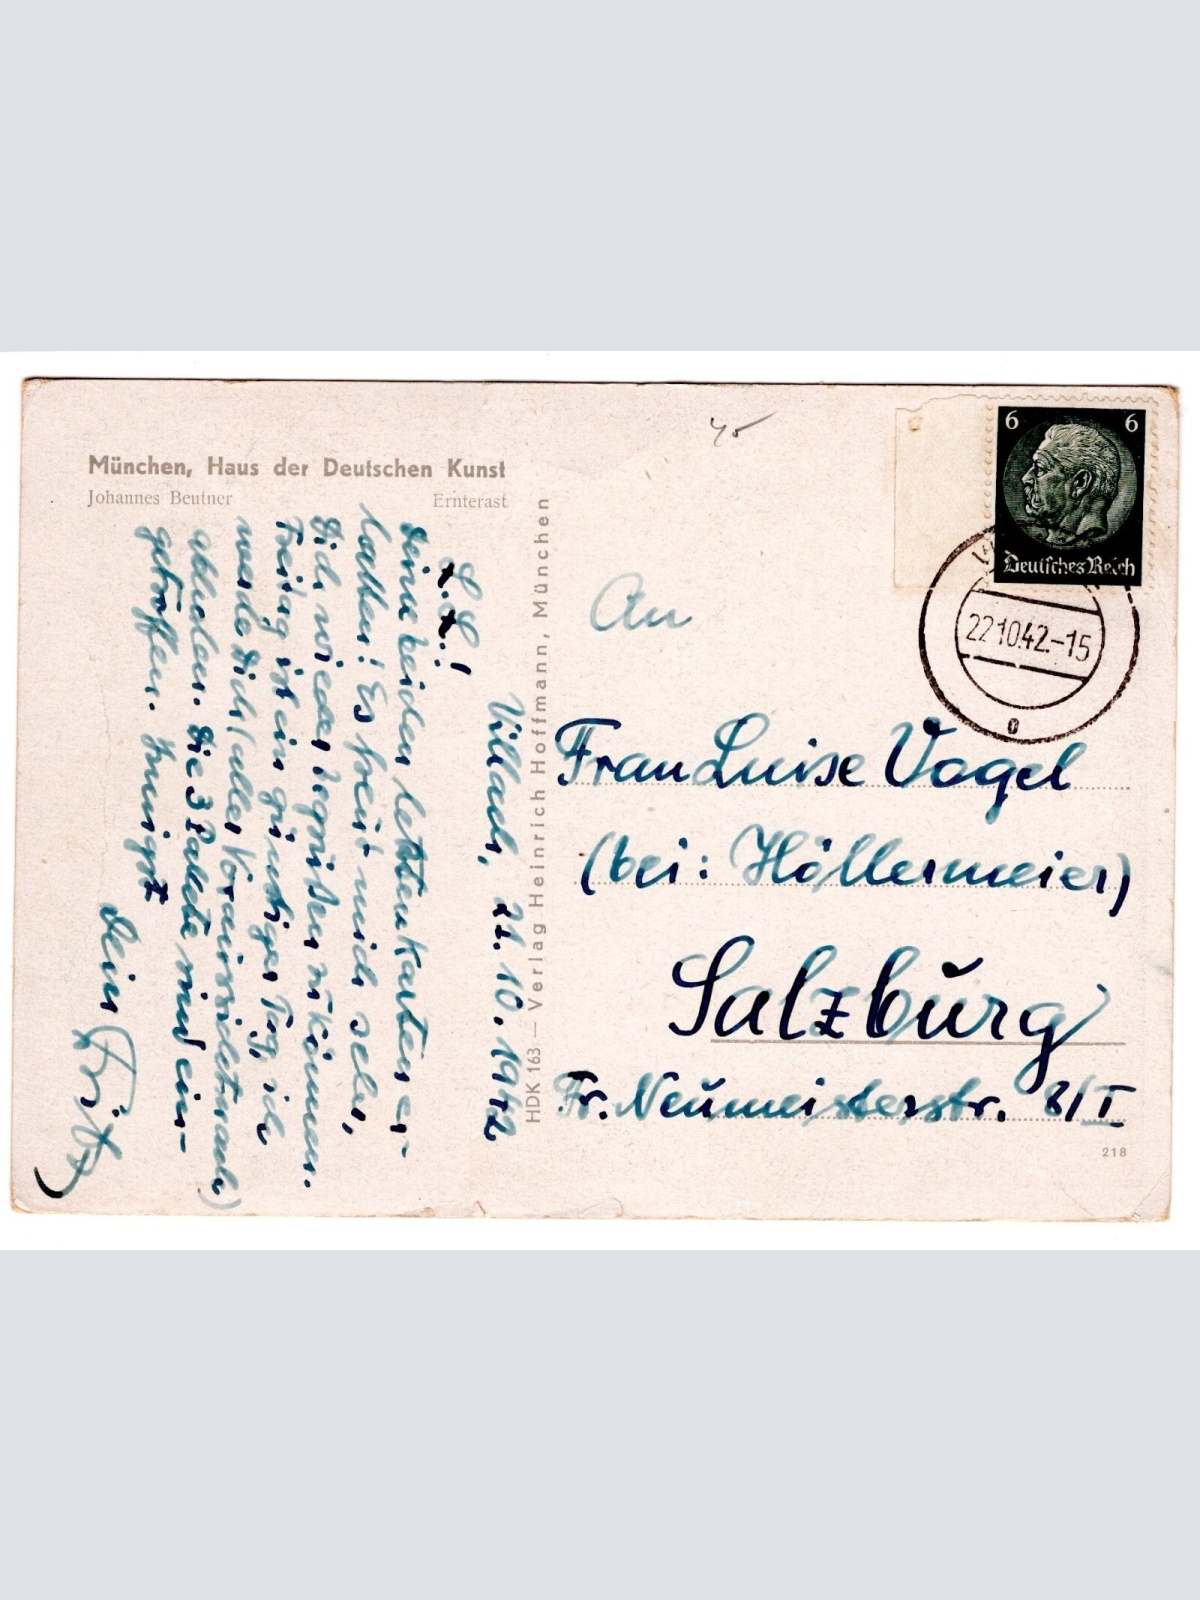 München, Haus der Deutschen Kunst
Johannes Beutner Ernterast
Villach, 21. 10. 1942
L. L.!
Deine beiden letzten Karten er-
halten! Es freut mich sehr,
Dich wieder begrüßen zu können.
Freitag ist ein günstiger Tag, ich
werde Dich (aller Voraussicht nach)
abholen. Die 3 Pakete sind ein-
getroffen. Innigst
Dein Fritz
HDK 163 — Verlag Heinrich Hoffmann, München
45
6 6
Deutsches Reich
22.10.42.-15
o
An
Frau Luise Vogel
(bei: Höllermeier)
Salzburg
Fr. Neumeisterstr. 8/I
218